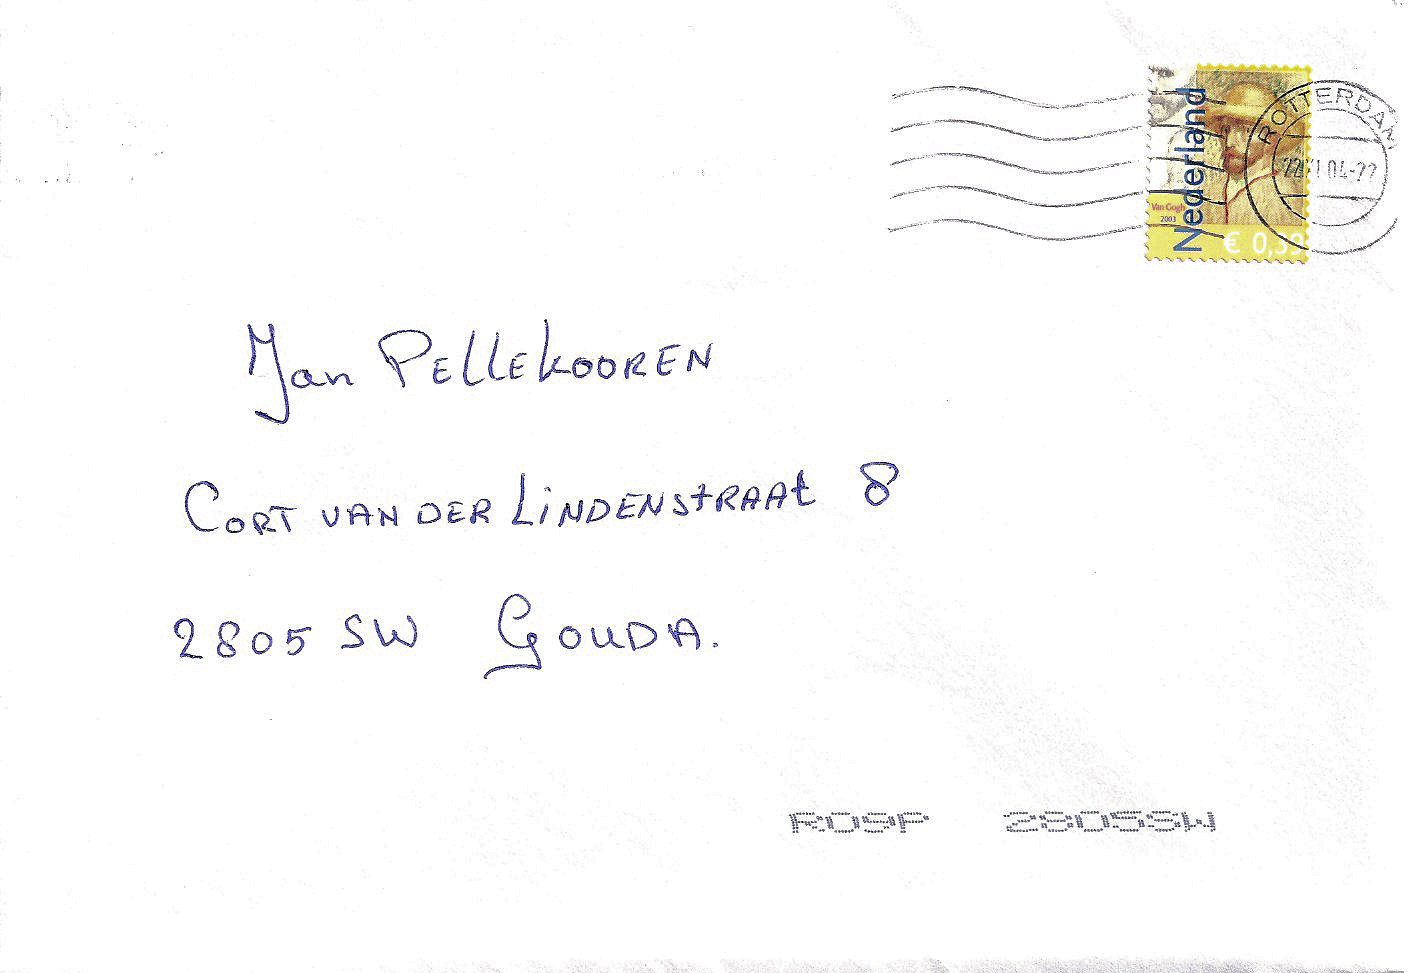 Nederland
Van Gogh
2003
€ 0,39
ROTTERDAM
Jan PELLEKOOREN
CORT VAN DER LINDENSTRAAT 8
2805 SW GOUDA.
RO9P 2805SW